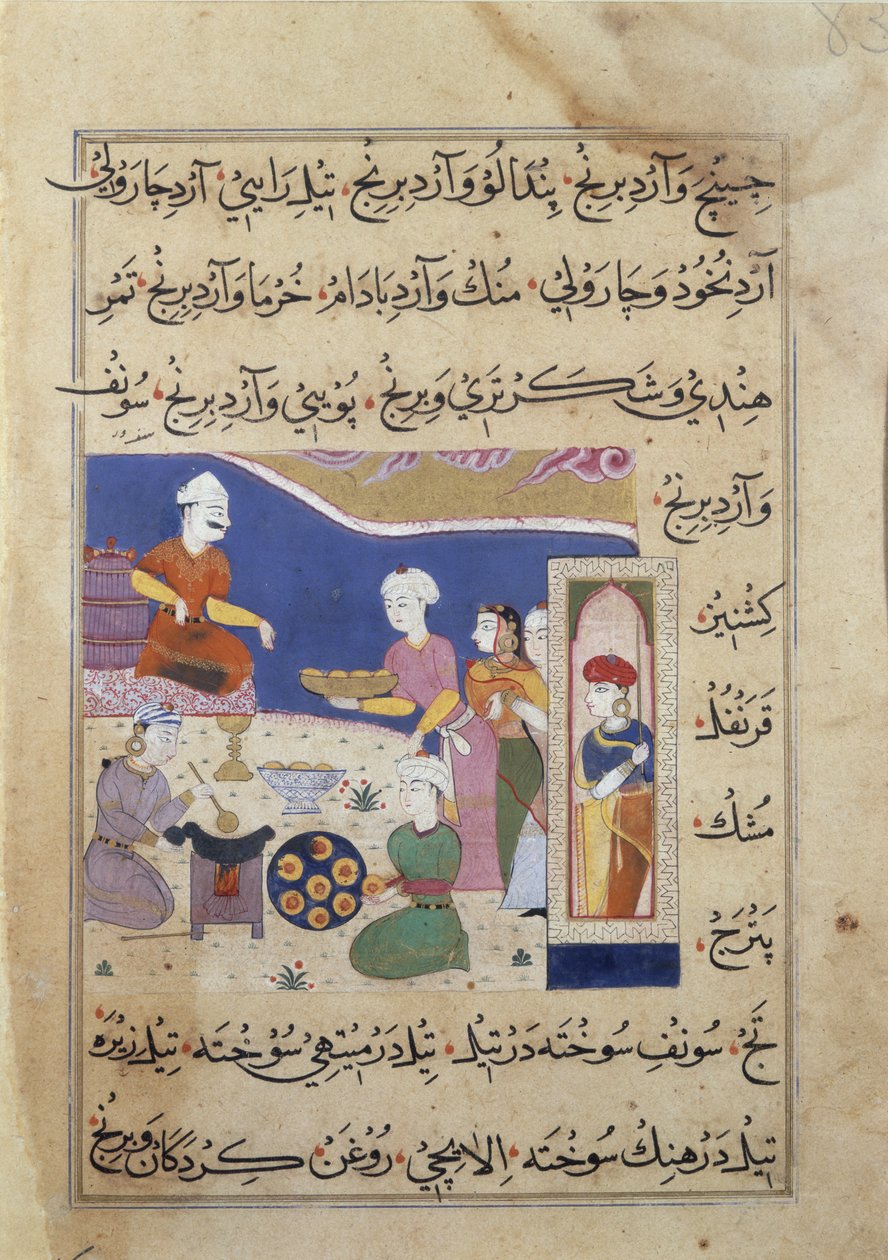 83
چِینْچْ وَآرْدِ بِرِنْجْ، پِنْدَالُوْ وَآرْدِ بِرِنْجْ، تِیْلِ رَایِيْ، آرْدِ چَارَوْلِيْ
آرْدِ نُخُوْدْ وَچَارَوْلِيْ، مُنْكْ وَآرْدِ بَادَامْ، خُرْمَا وَآرْدِ بِرِنْجْ، تَمْرِ
هِنْدِيْ وَشَكَرْ تَرِيْ وَبِرِنْجْ، پُوْیِيْ وَآرْدِ بِرِنْجْ، سُوْنْفْ
وَآرْدِ بِرِنْجْ،
كِشْنِیْزْ
قَرَنْفُلْ،
مُشْكْ،
پَتْرَجْ،
تَجْ، سُوْنْفِ سُوْخْتَه دَرْ تِیْلْ، تِیْلْ دَرْ مِیْتْهِيْ سُوْخْتَه، تِیْلِ زِیْرَه،
تِیْلْ دَرْ هِنْكْ سُوْخْتَه، اِلَایِچِيْ، رُوْغَنْ كِرْدَكَانْ وَبِرِنْجْ،